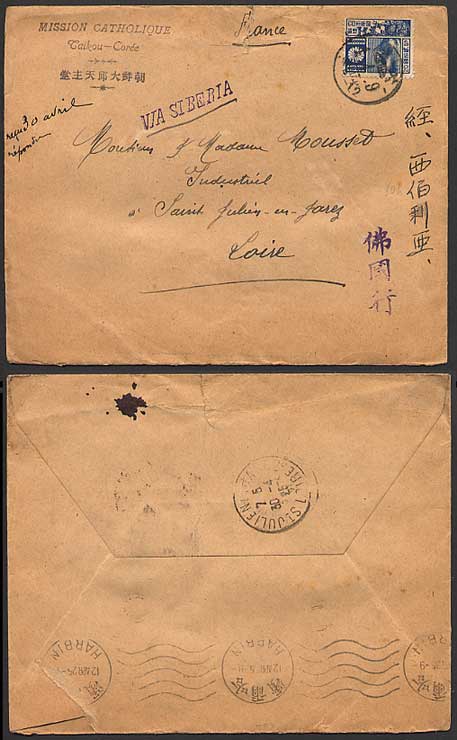 MISSION CATHOLIQUE
Taikou-Corée
朝鮮大邱天主堂
France
VIA SIBERIA
reçu 30 avril
répondre
Monsieur & Madame Mousset
Industriel
à Saint Julien-en-Jarez
Loire
經、西伯利亜、
佛國行
ST JULIEN
7 5
30 -4
25
HARBIN
12 AVR 25
HARBIN
哈爾濱